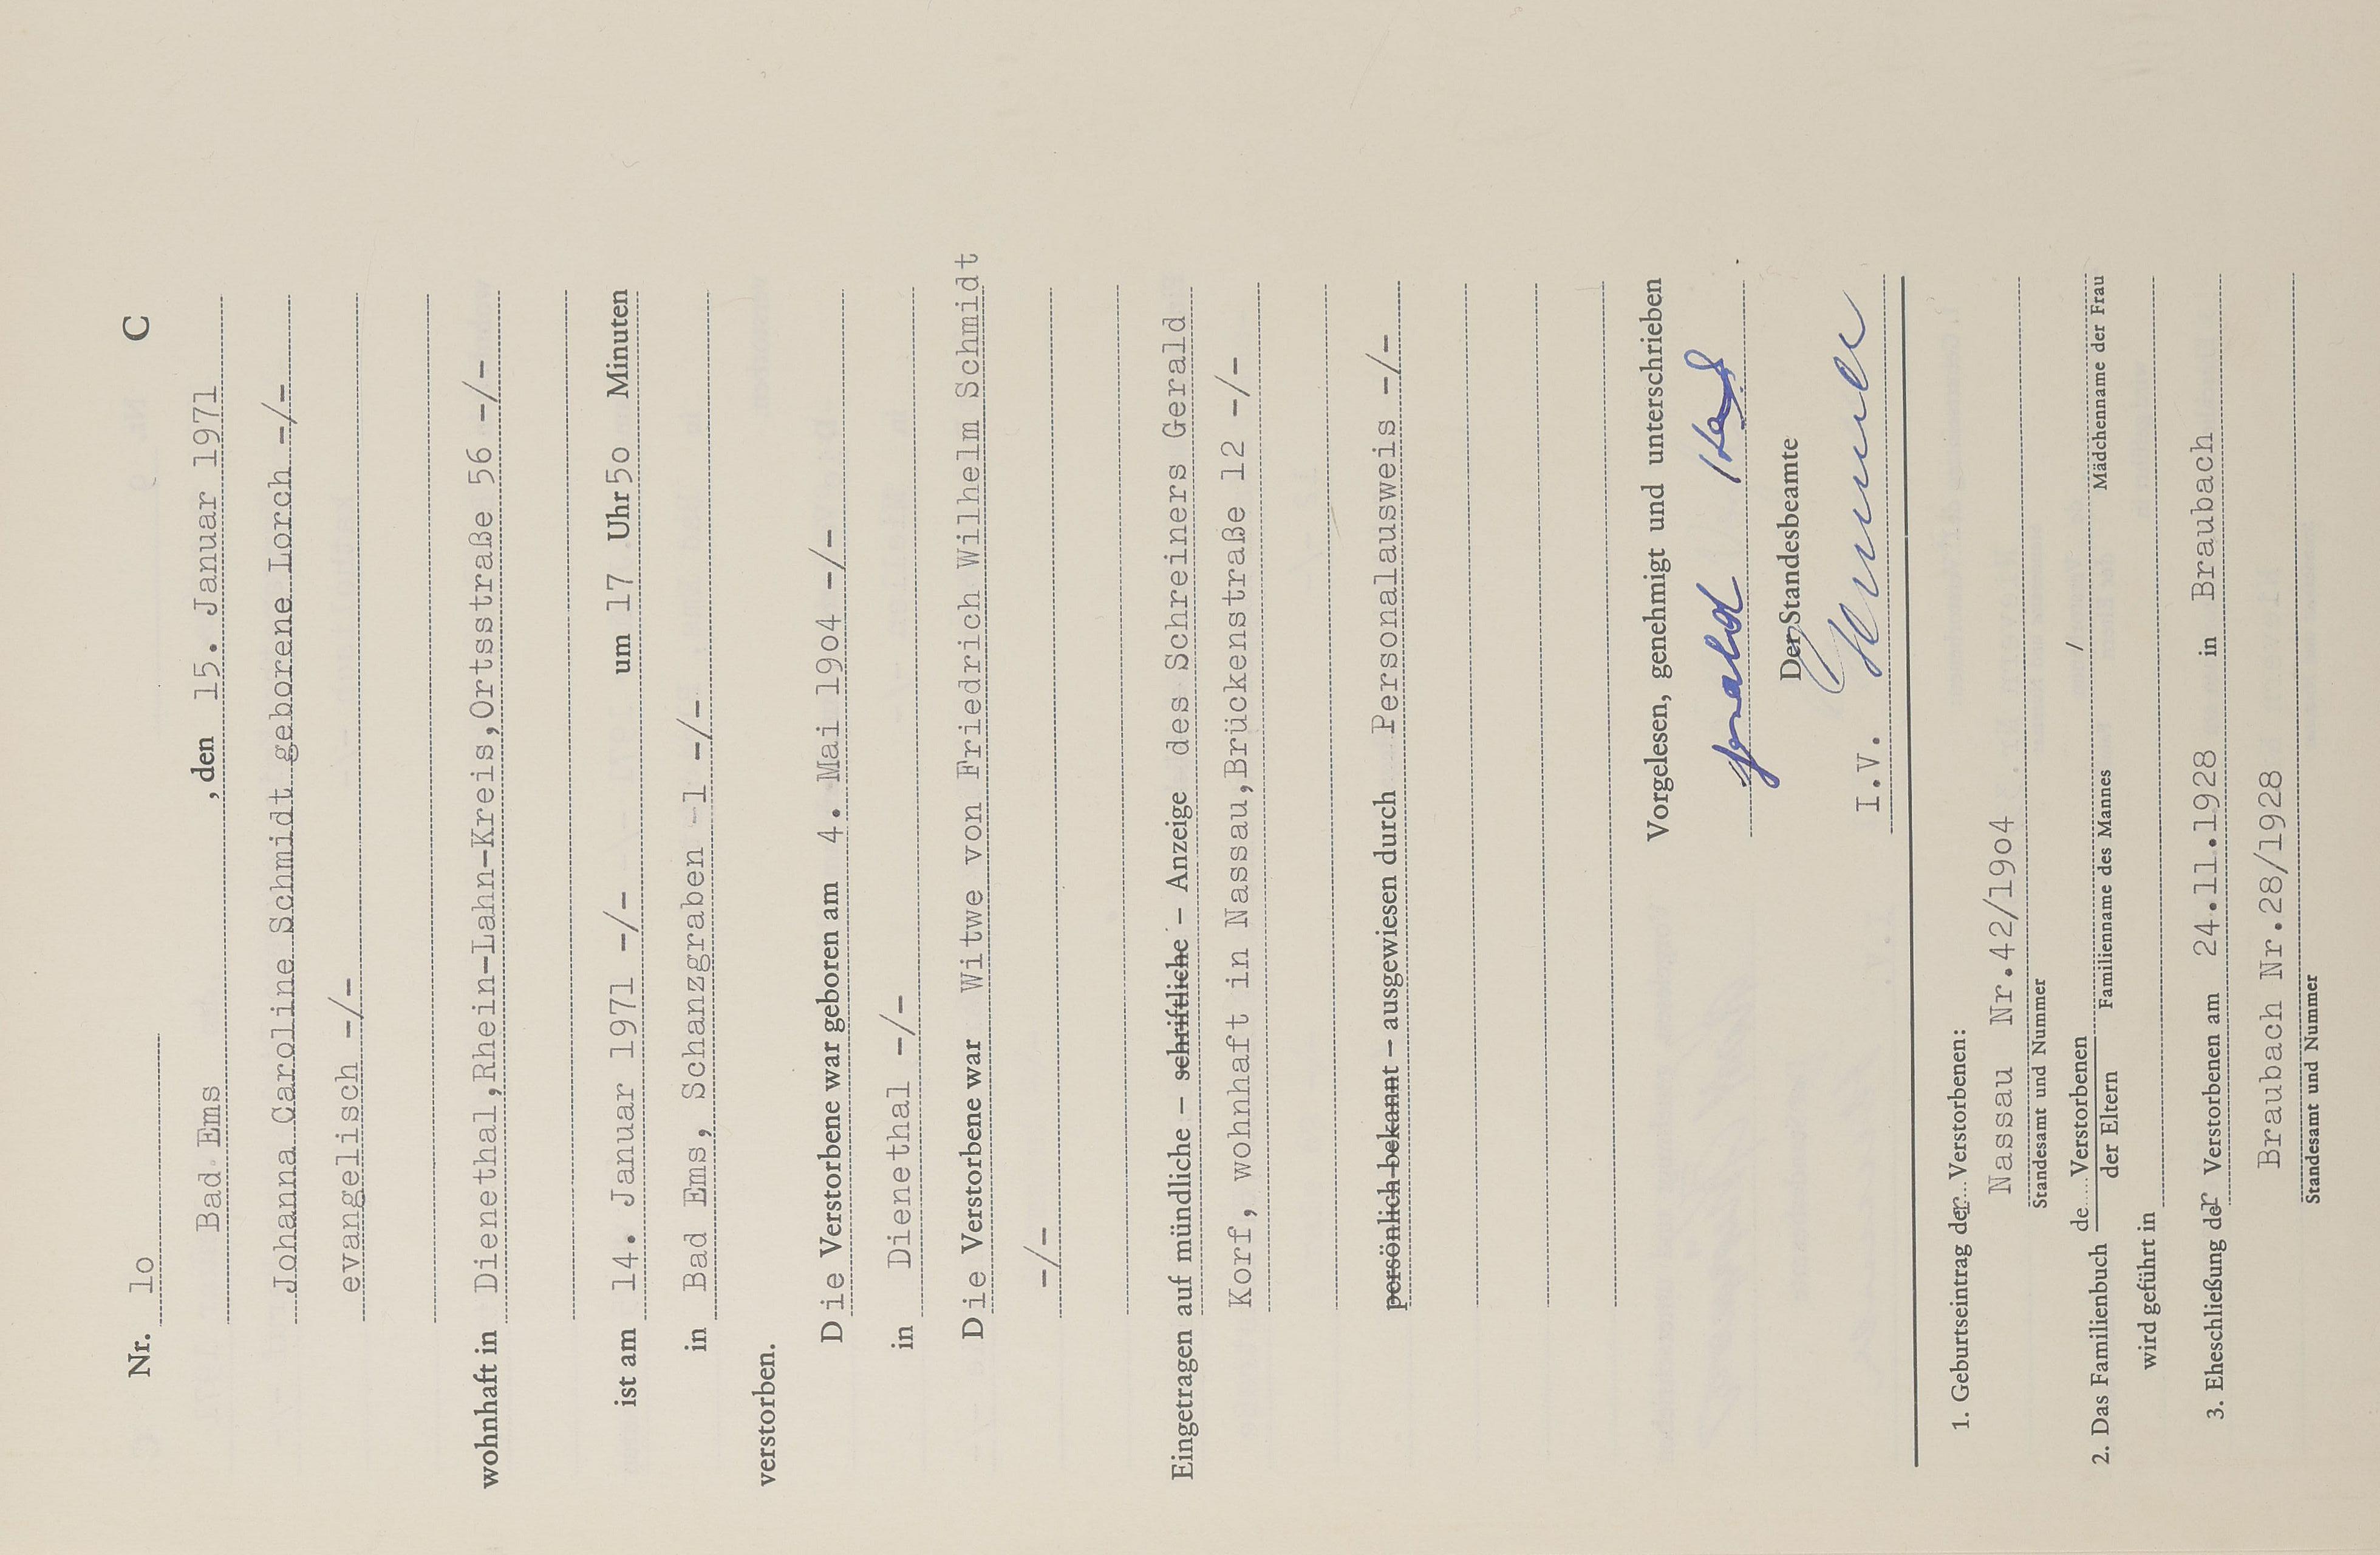 Nr. lo C
Bad Ems , den 15. Januar 1971
Johanna Caroline Schmidt geborene Lorch -/-
evangelisch -/-
wohnhaft in Dienethal,Rhein-Lahn-Kreis,Ortsstraße 56 -/-
ist am 14. Januar 1971 -/- um 17 Uhr 5o Minuten
in Bad Ems, Schanzgraben -1 -/-
verstorben.
Die Verstorbene war geboren am 4. Mai 19o4 -/-
in Dienethal -/-
Die Verstorbene war Witwe von Friedrich Wilhelm Schmidt
-/-
Eingetragen auf mündliche - schriftliche - Anzeige des Schreiners Gerald
Korf, wohnhaft in Nassau,Brückenstraße 12 -/-
persönlich bekannt - ausgewiesen durch Personalausweis -/-
Vorgelesen, genehmigt und unterschrieben
Gerald Korf
Der Standesbeamte
I.V.
1. Geburtseintrag der Verstorbenen:
Nassau Nr.42/19o4
Standesamt und Nummer
2. Das Familienbuch de Verstorbenen /
der Eltern Familienname des Mannes Mädchenname der Frau
wird geführt in
3. Eheschließung der Verstorbenen am 24.11.1928 in Braubach
Braubach Nr.28/1928
Standesamt und Nummer